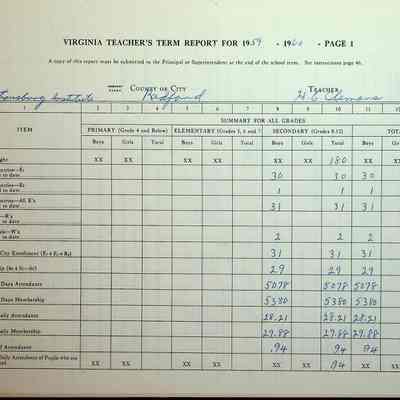 VIRGINIA TEACHER'S TERM REPORT FOR 1959 - 1960 - PAGE 1
A copy of this report must be submitted to the Principal or Superintendent at the end of the school term. See instructions page 46.
COUNTY OR CITY TEACHER
Institute Radford H. C. Clemons
1 2 3 4 5 6 7 8 9 10 11 12
SUMMARY FOR ALL GRADES
ITEM PRIMARY (Grade 4 and Below) ELEMENTARY (Grades 5, 6 and 7) SECONDARY (Grades 8-12)
Boys Girls Total Boys Girls Total Boys Girls Total Boys
XX XX XX XX XX XX 180 XX XX
to date 30 30 30
to date 1 1 1
to date 31 31 31
to date
to date 2 2 2
City Enrollment 31 31 31
29 29 29
Days Attendance 5078 5078 5078
Days Membership 5380 5380 5380
Daily Attendance 28.21 28.21 28.21
Daily Membership 29.88 29.88 29.88
Attendance .94 94 94
Daily Attendance of Pupils who are
XX XX XX XX XX XX 94 XX XX